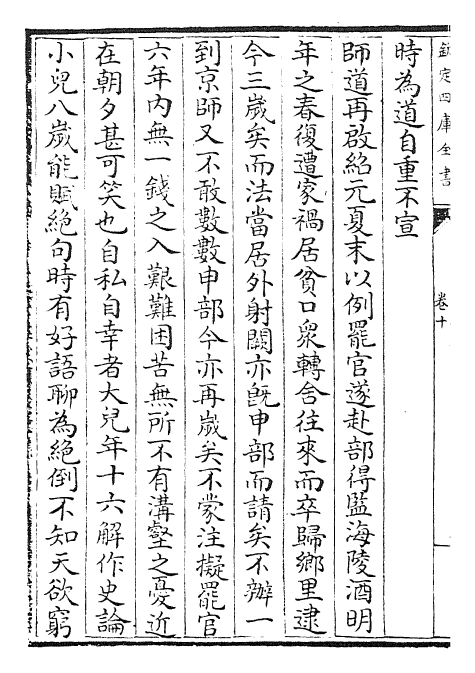 欽定四庫全書
卷十
時為道自重不宣
師道再啟紹元夏末以例罷官遂赴部得監海陵酒明
年之春復遭家禍居貧口衆轉舍往來而卒歸鄉里逮
今三歲矣而法當居外射闕亦既申部而請矣不辦一
到京師又不敢數數申部今亦再歲矣不蒙注擬罷官
六年内無一錢之入艱難困苦無所不有溝壑之憂近
在朝夕甚可笑也自私自幸者大兒年十六解作史論
小兒八歲能賦絶句時有好語聊為絶倒不知天欲窮